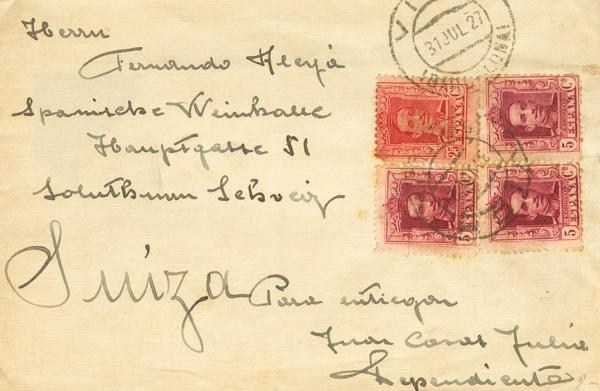 Herrn
Fernando Alejá
Spanische Weinhalle
Hauptgasse 51
Solothurn Schweiz
Suiza
Para entregar
Juan Casas Julié
Dependiente
VI
31 JUL 27
5 ESPAÑA
5 ESPAÑA
5 ESPAÑA
ESPAÑA